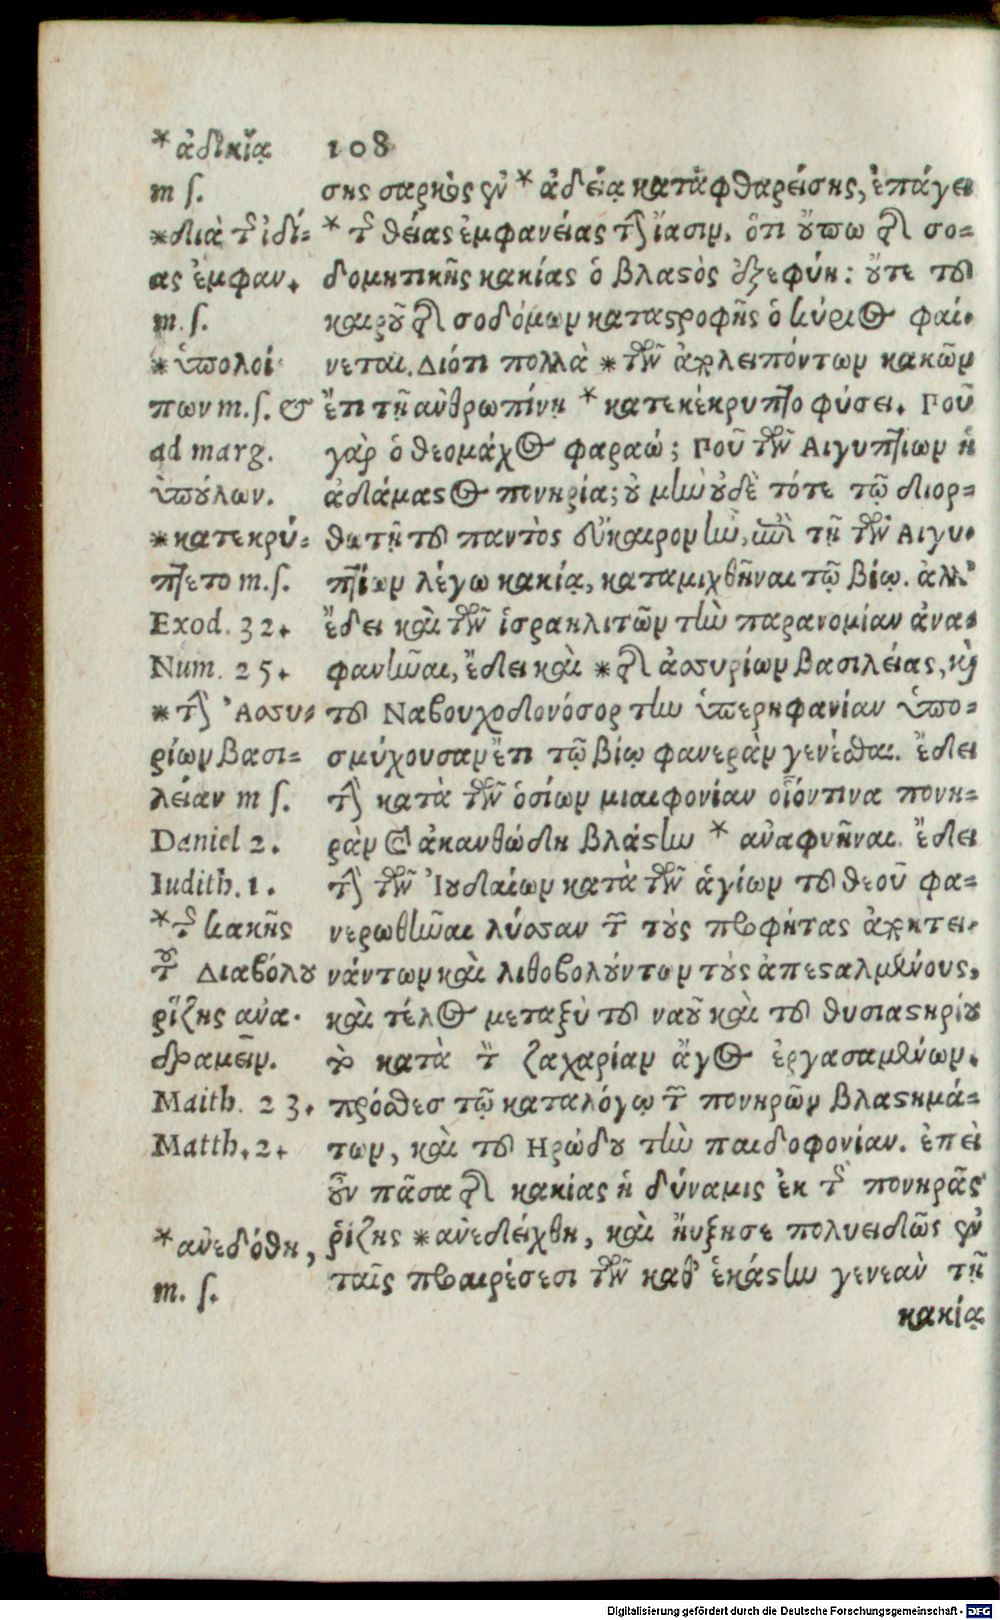 108
σης σαρκὸς ἐν * ἀδείᾳ καταφθαρείσης, ἐπάγει
* τῆς θείας ἐμφανείας τὴν ἴασιν. ὅτι οὔπω τῆς σο-
δομητικῆς κακίας ὁ βλαστὸς ἐξεφύη: οὔτε τοῦ
καιροῦ τῆς σοδόμων καταστροφῆς ὁ κύριος φαί-
νεται. Διότι πολλὰ * τῶν ἀπολειπόντων κακῶν
ἔτι τῇ ἀνθρωπίνῃ * κατεκέκρυπτο φύσει. Ποῦ
γὰρ ὁ θεομάχος φαραώ; Ποῦ τῶν Αἰγυπτίων ἡ
ἀδάμαστος πονηρία; οὐ μὴν οὐδὲ τότε τῷ διορ-
θωτῇ τοῦ παντὸς εὔκαιρον ἦν, ἐπὶ τῇ τῶν Αἰγυ-
πτίων λέγω κακίᾳ, καταμιχθῆναι τῷ βίῳ. ἀλλ'
ἔδει καὶ τῶν ἰσραηλιτῶν τὴν παρανομίαν ἀνα-
φανῆναι, ἔδει καὶ * τῆς ἀσσυρίων βασιλείας, καὶ
τοῦ Ναβουχοδονόσορ τὴν ὑπερηφανίαν ὑπο-
σμύχουσαν ἔτι τῷ βίῳ φανερὰν γενέσθαι. ἔδει
τὴν κατὰ τῶν ὁσίων μιαιφονίαν οἷόντινα πονη-
ρὰν καὶ ἀκανθώδη βλάστην * ἀναφυῆναι. ἔδει
τὴν τῶν Ἰουδαίων κατὰ τῶν ἁγίων τοῦ θεοῦ φα-
νερωθῆναι λύσσαν τῶν τοὺς προφήτας ἀποκτει-
νάντων καὶ λιθοβολούντων τοὺς ἀπεσταλμένους,
καὶ τέλος μεταξὺ τοῦ ναοῦ καὶ τοῦ θυσιαστηρίου
τὸ κατὰ τὸν ζαχαρίαν ἄγος ἐργασαμένων.
πρόσθες τῷ καταλόγῳ τῶν πονηρῶν βλαστημά-
των, καὶ τοῦ Ηρώδου τὴν παιδοφονίαν. ἐπεὶ
οὖν πᾶσα τῆς κακίας ἡ δύναμις ἐκ τῆς πονηρᾶς
ῥίζης * ἀνεδείχθη, καὶ ηὔξησε πολυειδῶς ἐν
ταῖς προαιρέσεσι τῶν καθ' ἑκάστην γενεὰν τῇ
κακίᾳ
* ἀδικίᾳ
m s.
* διὰ τῆς ἰδί-
ας ἐμφαν.
m. s.
* ὑπολοί-
πων m. s. &
ad marg.
ὑπούλων.
* κατεκρύ-
πτετο m. s.
Exod. 32.
Num. 25.
* τὴν Ἀσσυ-
ρίων βασι-
λείαν m s.
Daniel 2.
Iudith. 1.
* τῆς κακῆς
τοῦ Διαβόλου
ῥίζης ἀνα-
δραμεῖν.
Matth. 23.
Matth. 2.
* ἀνεδόθη,
m. s.
Digitalisierung gefördert durch die Deutsche Forschungsgemeinschaft - DFG